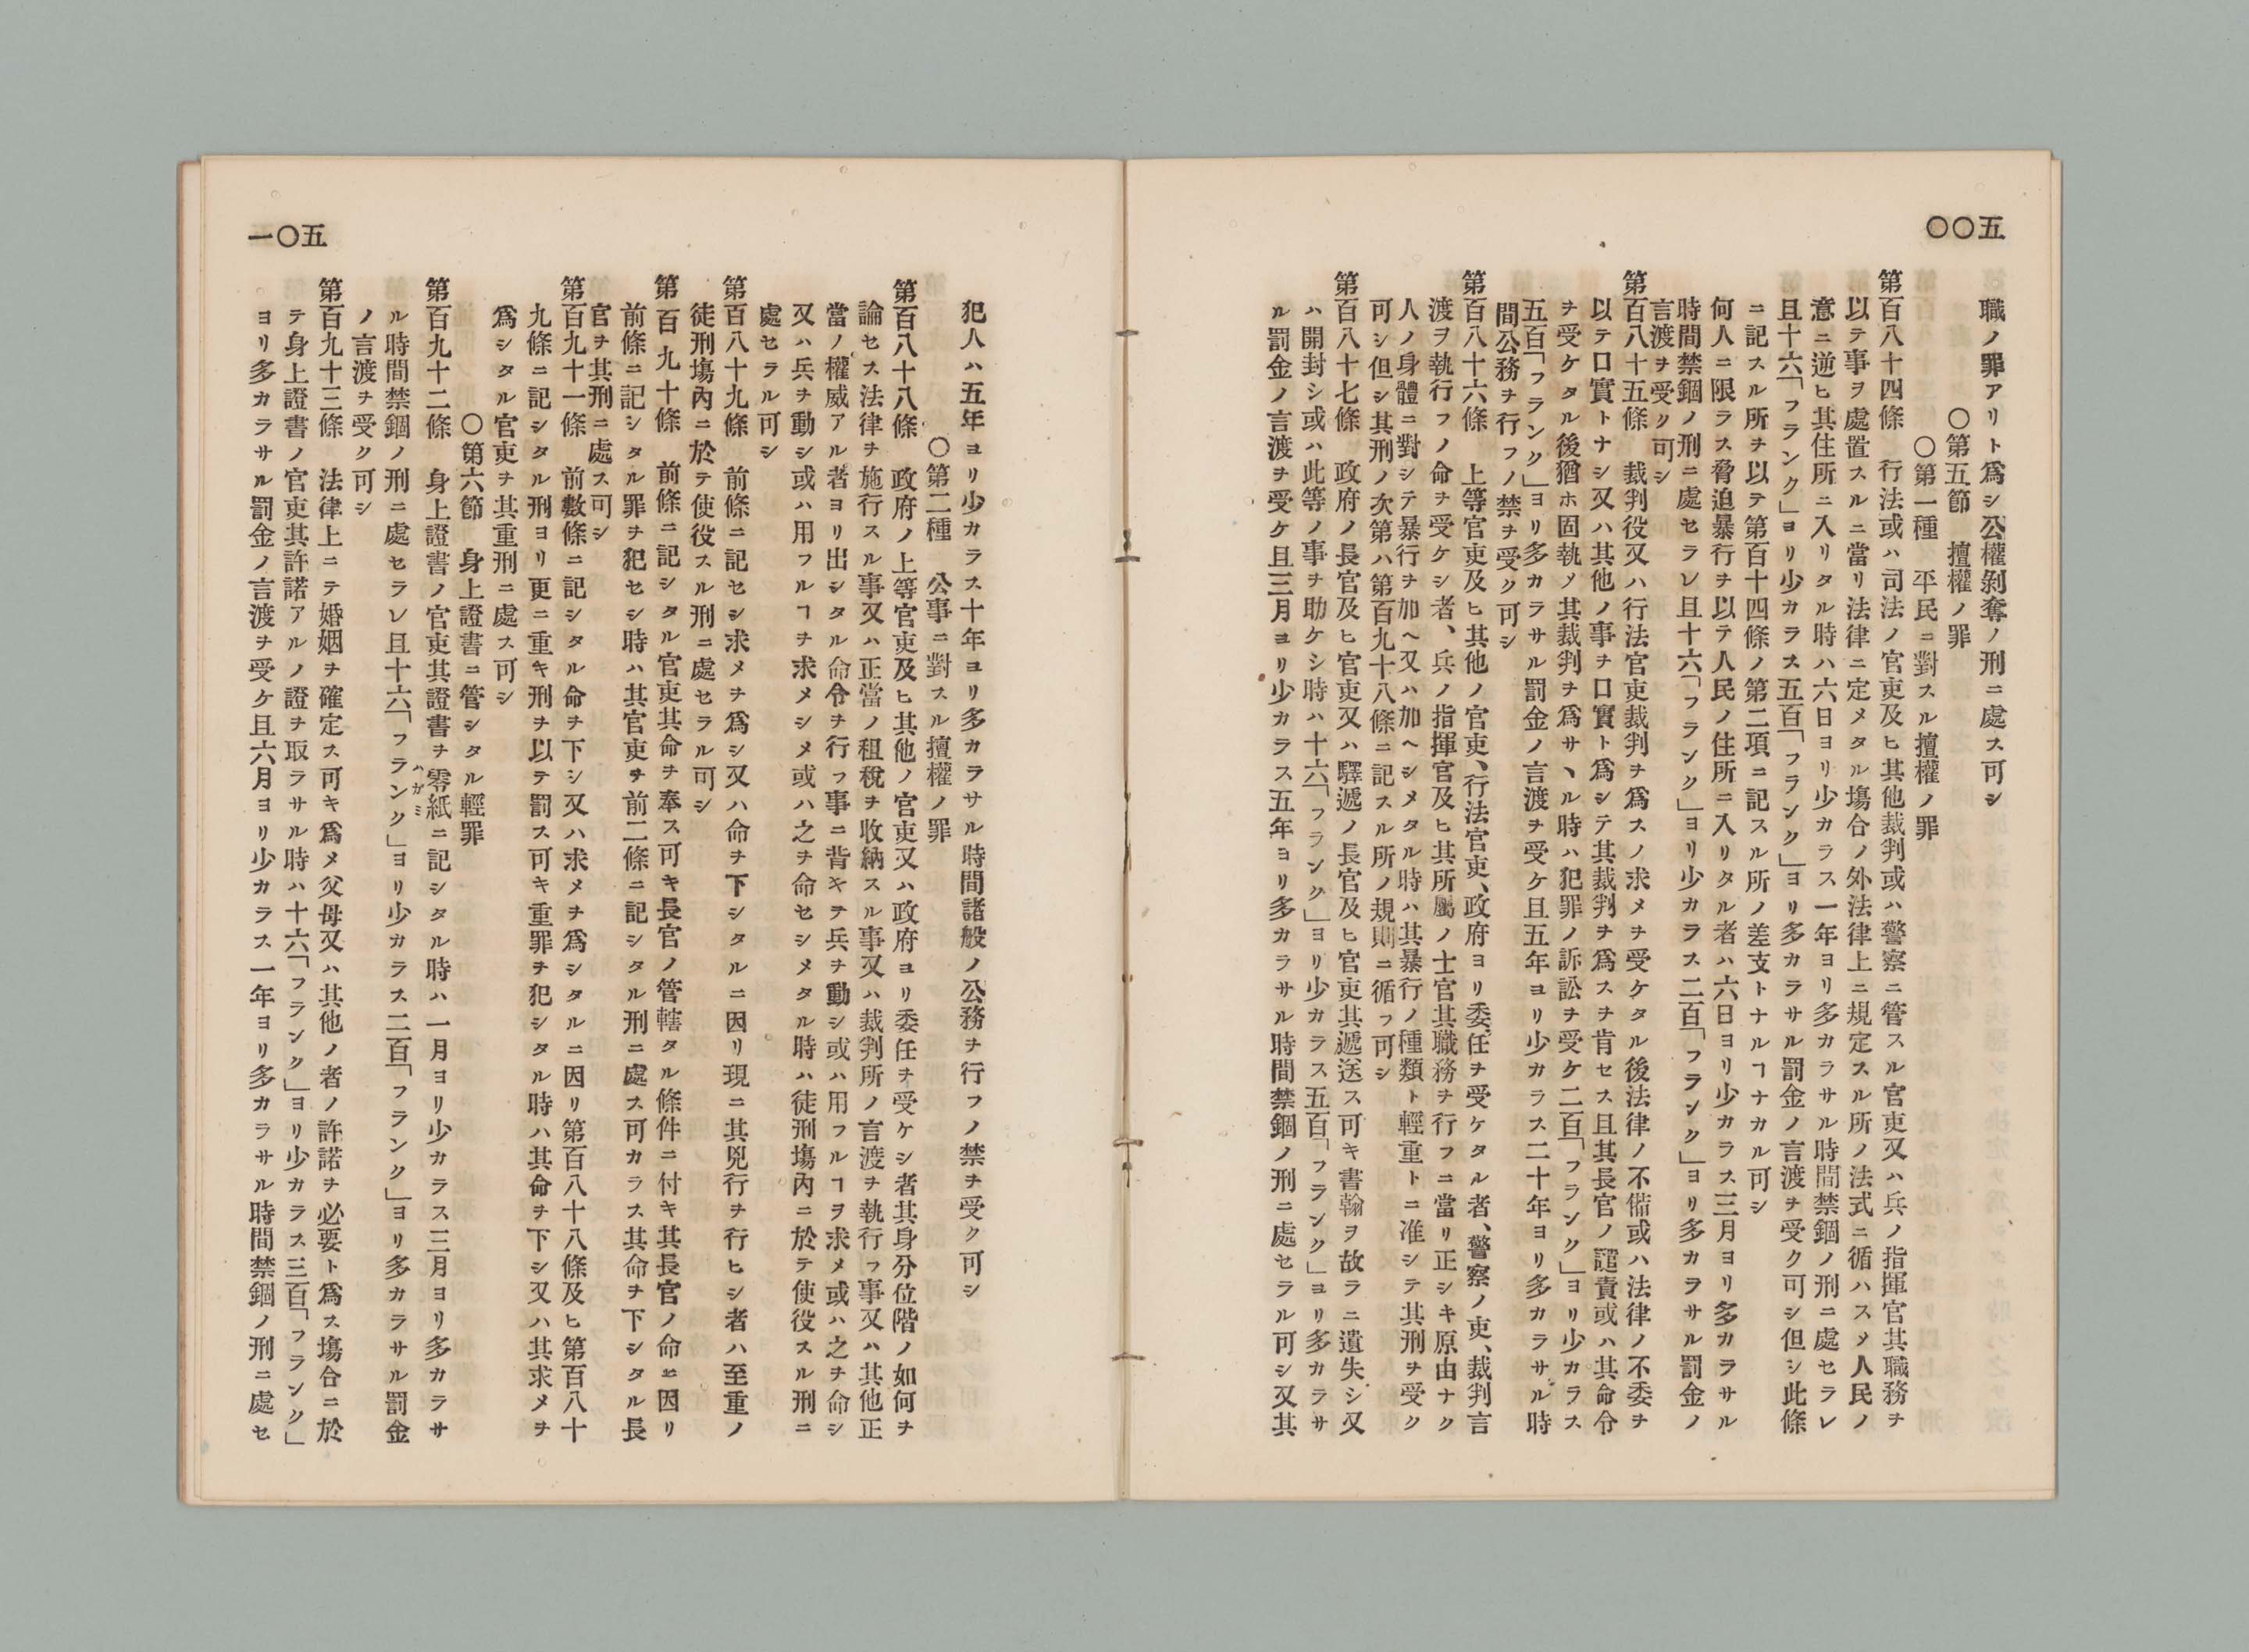 五〇〇
職ノ罪アリト爲シ公權剝奪ノ刑ニ處ス可シ
〇第五節　擅權ノ罪
〇第一種　平民ニ對スル擅權ノ罪
第百八十四條　行法或ハ司法ノ官吏及ヒ其他裁判或ハ警察ニ管スル官吏又ハ兵ノ指揮官其職務ヲ
以テ事ヲ處置スルニ當リ法律ニ定メタル塲合ノ外法律上ニ規定スル所ノ法式ニ循ハスメ人民ノ
意ニ逆ヒ其住所ニ入リタル時ハ六日ヨリ少カラス一年ヨリ多カラサル時間禁錮ノ刑ニ處セラレ
且十六「フランク」ヨリ少カラス五百「フランク」ヨリ多カラサル罰金ノ言渡ヲ受ク可シ但シ此條
ニ記スル所ヲ以テ第百十四條ノ第二項ニ記スル所ノ差支トナルヿナカル可シ
何人ニ限ラス脅迫暴行ヲ以テ人民ノ住所ニ入リタル者ハ六日ヨリ少カラス三月ヨリ多カラサル
時間禁錮ノ刑ニ處セラレ且十六「フランク」ヨリ少カラス二百「フランク」ヨリ多カラサル罰金ノ
言渡ヲ受ク可シ
第百八十五條　裁判役又ハ行法官吏裁判ヲ爲スノ求メヲ受ケタル後法律ノ不備或ハ法律ノ不委ヲ
以テ口實トナシ又ハ其他ノ事ヲ口實ト爲シテ其裁判ヲ爲スヲ肯セス且其長官ノ譴責或ハ其命令
ヲ受ケタル後猶ホ固執ノ其裁判ヲ爲サヽル時ハ犯罪ノ訴訟ヲ受ケ二百「フランク」ヨリ少カラス
五百「フランク」ヨリ多カラサル罰金ノ言渡ヲ受ケ且五年ヨリ少カラス二十年ヨリ多カラサル時
間公務ヲ行フノ禁ヲ受ク可シ
第百八十六條　上等官吏及ヒ其他ノ官吏、行法官吏、政府ヨリ委任ヲ受ケタル者、警察ノ吏、裁判言
渡ヲ執行フノ命ヲ受ケシ者、兵ノ指揮官及ヒ其所屬ノ士官其職務ヲ行フニ當リ正シキ原由ナク
人ノ身體ニ對シテ暴行ヲ加ヘ又ハ加ヘシメタル時ハ其暴行ノ種類ト輕重トニ准シテ其刑ヲ受ク
可シ但シ其刑ノ次第ハ第百九十八條ニ記スル所ノ規則ニ循フ可シ
第百八十七條　政府ノ長官及ヒ官吏又ハ驛遞ノ長官及ヒ官吏其遞送ス可キ書翰ヲ故ラニ遺失シ又
ハ開封シ或ハ此等ノ事ヲ助ケシ時ハ十六「フランク」ヨリ少カラス五百「フランク」ヨリ多カラサ
ル罰金ノ言渡ヲ受ケ且三月ヨリ少カラス五年ヨリ多カラサル時間禁錮ノ刑ニ處セラル可シ又其
五〇一
犯人ハ五年ヨリ少カラス十年ヨリ多カラサル時間諸般ノ公務ヲ行フノ禁ヲ受ク可シ
〇第二種　公事ニ對スル擅權ノ罪
第百八十八條　政府ノ上等官吏及ヒ其他ノ官吏又ハ政府ヨリ委任ヲ受ケシ者其身分位階ノ如何ヲ
論セス法律ヲ施行スル事又ハ正當ノ租稅ヲ收納スル事又ハ裁判所ノ言渡ヲ執行フ事又ハ其他正
當ノ權威アル者ヨリ出シタル命令ヲ行フ事ニ背キテ兵ヲ動シ或ハ用フルヿヲ求メ或ハ之ヲ命シ
又ハ兵ヲ動シ或ハ用フルヿヲ求メシメ或ハ之ヲ命セシメタル時ハ徒刑塲內ニ於テ使役スル刑ニ
處セラル可シ
第百八十九條　前條ニ記セシ求メヲ爲シ又ハ命ヲ下シタルニ因リ現ニ其兇行ヲ行ヒシ者ハ至重ノ
徒刑塲內ニ於テ使役スル刑ニ處セラル可シ
第百九十條　前條ニ記シタル官吏其命ヲ奉ス可キ長官ノ管轄タル條件ニ付キ其長官ノ命ニ因リ
前條ニ記シタル罪ヲ犯セシ時ハ其官吏ヲ前二條ニ記シタル刑ニ處ス可カラス其命ヲ下シタル長
官ヲ其刑ニ處ス可シ
第百九十一條　前數條ニ記シタル命ヲ下シ又ハ求メヲ爲シタルニ因リ第百八十八條及ヒ第百八十
九條ニ記シタル刑ヨリ更ニ重キ刑ヲ以テ罰ス可キ重罪ヲ犯シタル時ハ其命ヲ下シ又ハ其求メヲ
爲シタル官吏ヲ其重刑ニ處ス可シ
〇第六節　身上證書ニ管シタル輕罪
第百九十二條　身上證書ノ官吏其證書ヲ零紙ニ記シタル時ハ一月ヨリ少カラス三月ヨリ多カラサ
ハガミ
ル時間禁錮ノ刑ニ處セラレ且十六「フランク」ヨリ少カラス二百「フランク」ヨリ多カラサル罰金
ノ言渡ヲ受ク可シ
第百九十三條　法律上ニテ婚姻ヲ確定ス可キ爲メ父母又ハ其他ノ者ノ許諾ヲ必要ト爲ス塲合ニ於
テ身上證書ノ官吏其許諾アルノ證ヲ取ラサル時ハ十六「フランク」ヨリ少カラス三百「フランク」
ヨリ多カラサル罰金ノ言渡ヲ受ケ且六月ヨリ少カラス一年ヨリ多カラサル時間禁錮ノ刑ニ處セ